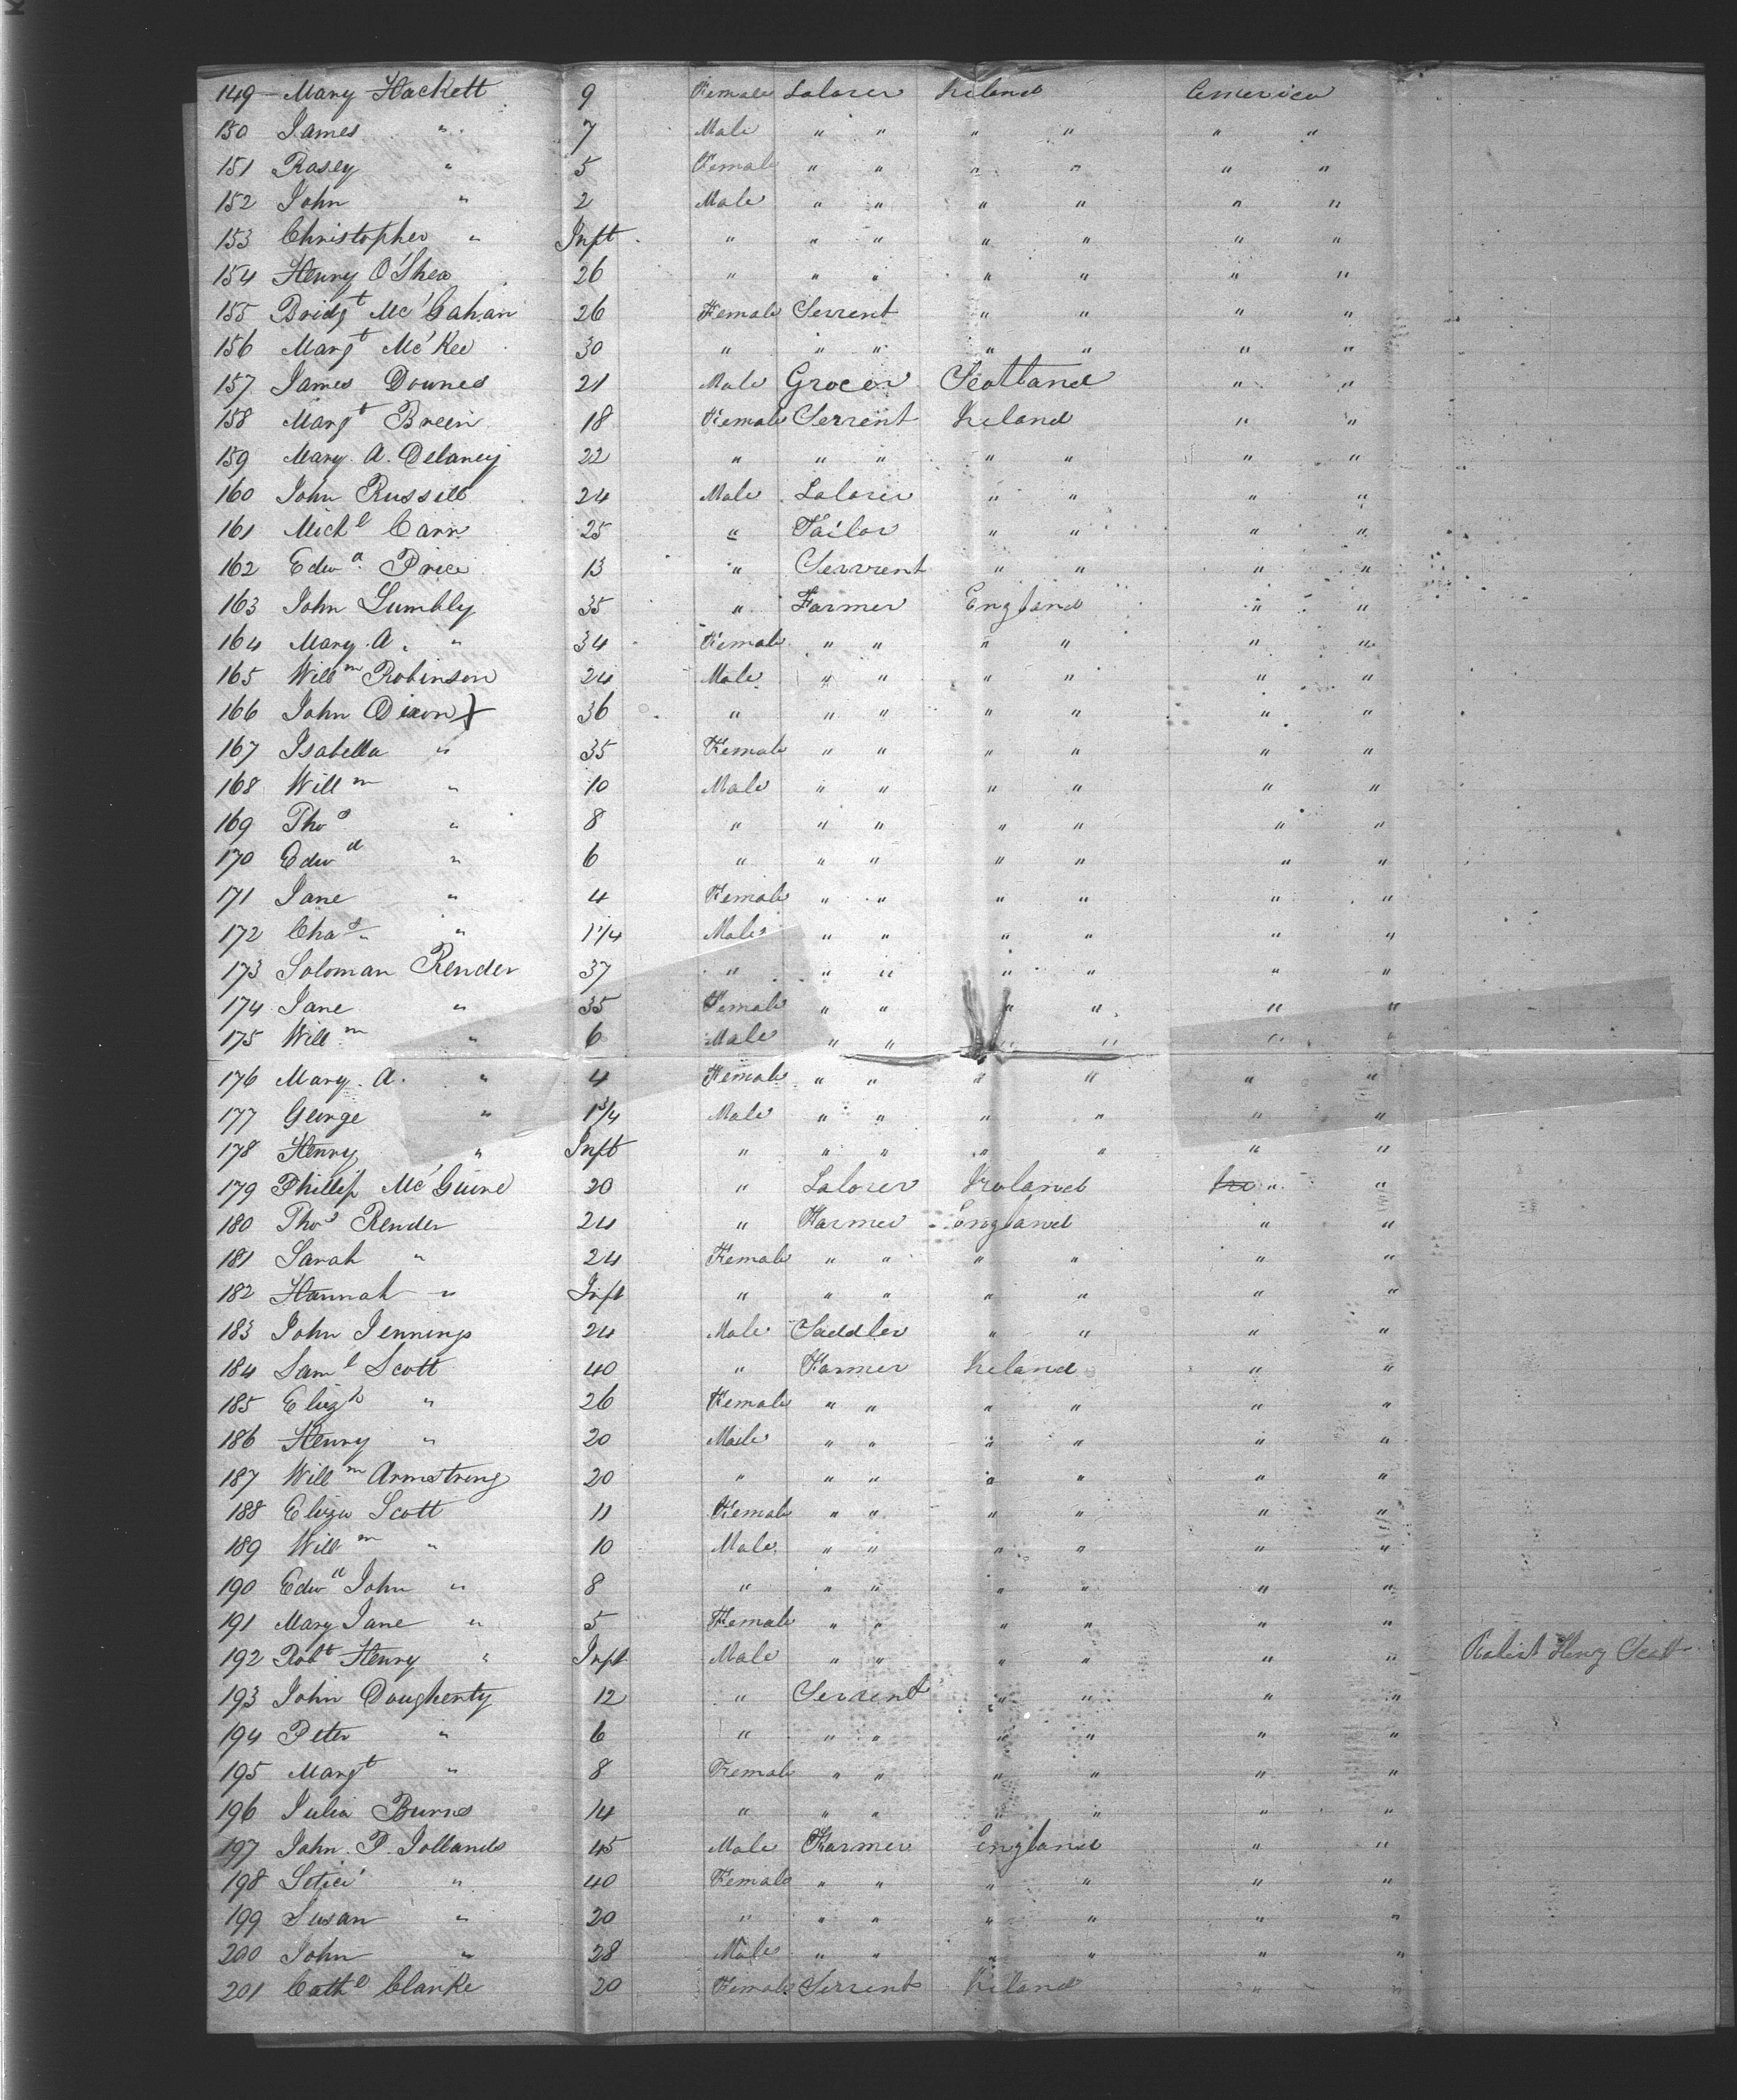 149 Mary Hackett 9 Female Laborer Ireland America
150 James " 7 Male " " " " " "
151 Rosey " 5 Female " " " " " "
152 John " 2 Male " " " " " "
153 Christopher " Inft " " " " " " "
154 Henry O'Shea 26 " " " " " " "
155 Bridgt McGahan 26 Female Servent " " " "
156 Margt McKee 30 " " " " " " "
157 James Downes 21 Male Grocer Scotland " "
158 Margt Breen 18 Female Servent Ireland " "
159 Mary A. Delaney 22 " " " " " " "
160 John Russill 24 Male Laborer " " " "
161 Michl Carr 25 " Tailor " " " "
162 Edwd Price 13 " Servent " " " "
163 John Lumbly 35 " Farmer England " "
164 Mary A. " 34 Female " " " " " "
165 Willm Robinson 24 Male " " " " " "
166 John Dixon 36 " " " " " " "
167 Isabella " 35 Female " " " " " "
168 Willm " 10 Male " " " " " "
169 Thos " 8 " " " " " " "
170 Edwd " 6 " " " " " " "
171 Jane " 4 Female " " " " " "
172 Chas " 1 1/4 Male " " " " " "
173 Soloman Render 37 " " " " " " "
174 Jane " 35 Female " " " " " "
175 Willm " 6 Male " " " " " "
176 Mary. A. " 4 Female " " " " " "
177 George " 1 3/4 Male " " " " " "
178 Henry " Inft " " " " " " "
179 Phillip McGuire 20 " Laborer Ireland " "
180 Thos Render 24 " Farmer England " "
181 Sarah " 24 Female " " " " " "
182 Hannah " Inft " " " " " " "
183 John Jennings 24 Male Saddler " " " "
184 Saml Scott 40 " Farmer Ireland " "
185 Elizh " 26 Female " " " " " "
186 Henry " 20 Male " " " " " "
187 Willm Armstrong 20 " " " " " " "
188 Eliza Scott 11 Female " " " " " "
189 Willm " 10 Male " " " " " "
190 Edwd John " 8 " " " " " " "
191 Mary Jane " 5 Female " " " " " "
192 Robt Henry " Inft Male " " " " " " Henry Scott
193 John Dougherty 12 " Servent " " " "
194 Peter " 6 " " " " " " "
195 Margt " 8 Female " " " " " "
196 Julia Burns 14 " " " " " " "
197 John. P. Jollands 45 Male Farmer England " "
198 " 40 Female " " " " " "
199 Susan " 20 " " " " " " "
200 John " 28 Male " " " " " "
201 Cathe Clarke 20 Female Servent Ireland " "